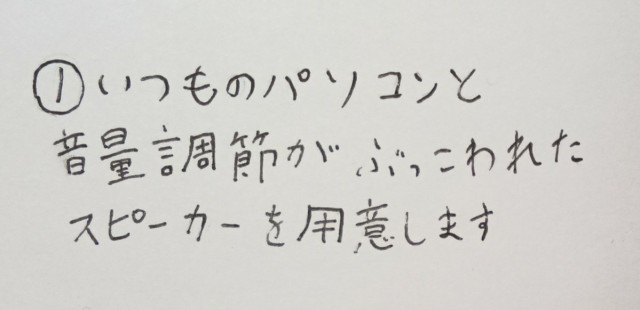 ①いつものパソコンと
音量調節がぶっこわれた
スピーカーを用意します